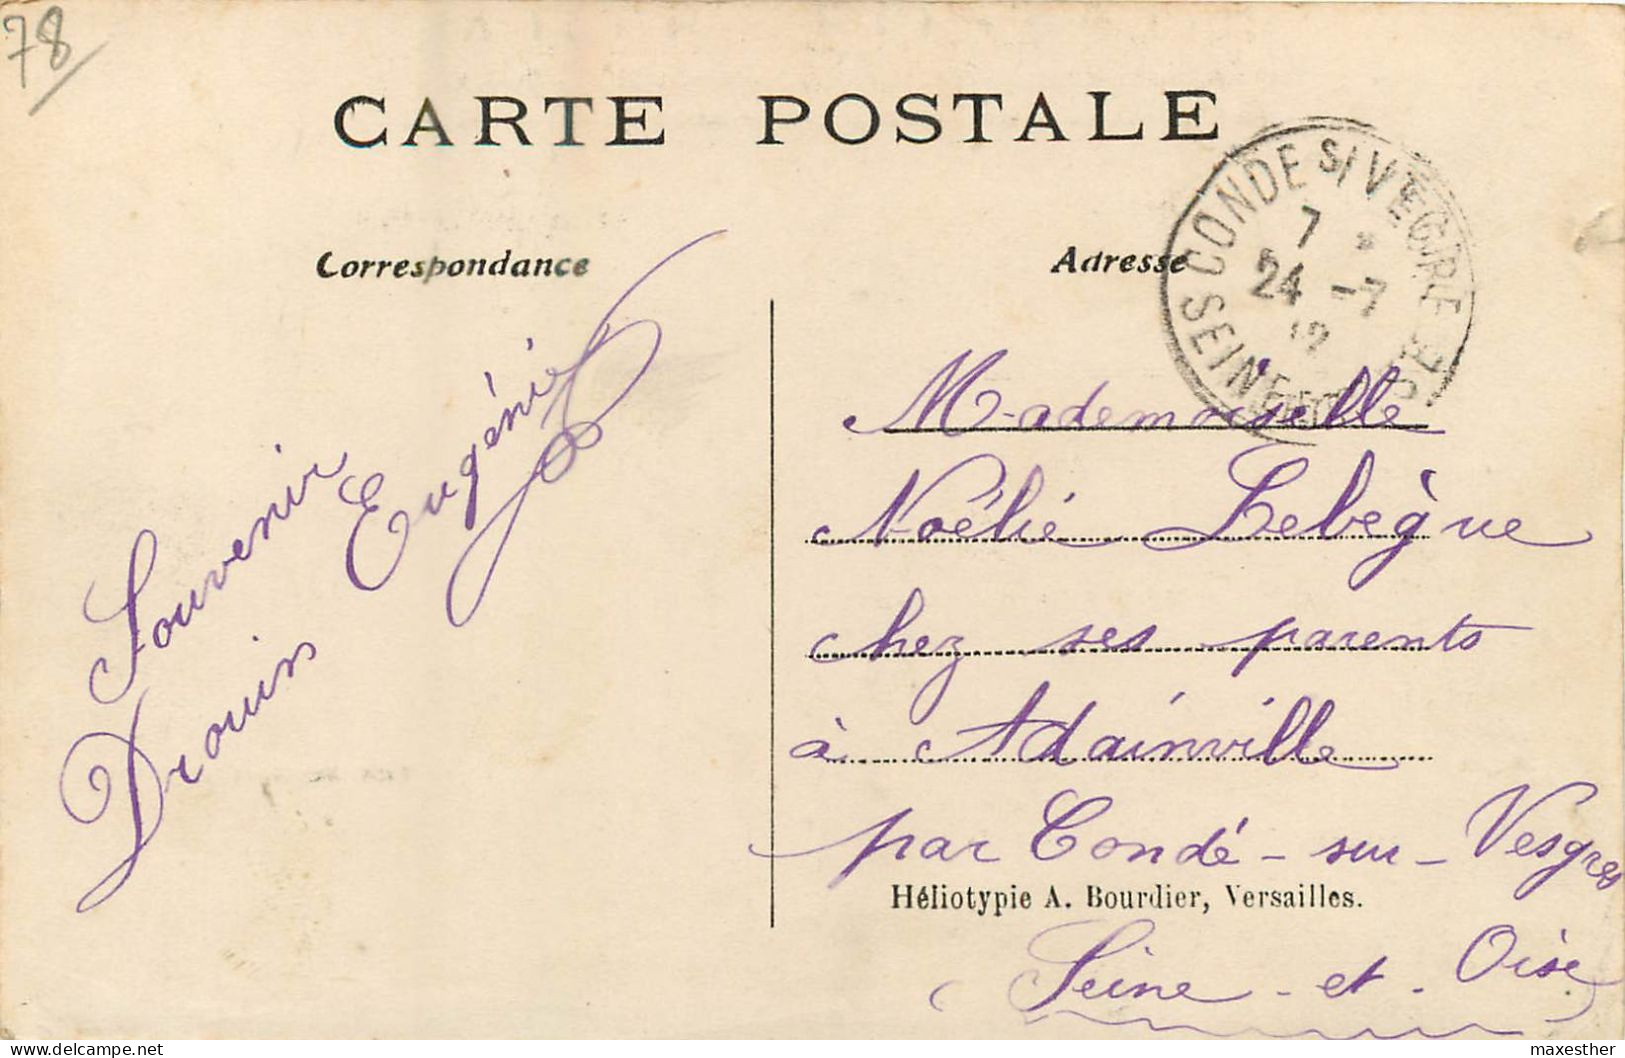 78
CARTE POSTALE
Correspondance
Adresse
CONDE S/VEGRE
7 *
24 -7
12
SEINE ET OISE
Souvenir
Drouin Eugénie
Mademoiselle
Noélie Lebègue
chez ses parents
à Adainville
par Condé-sur-Vesgres
Héliotypie A. Bourdier, Versailles.
(Seine-et-Oise)
delcampe.net
maxesther